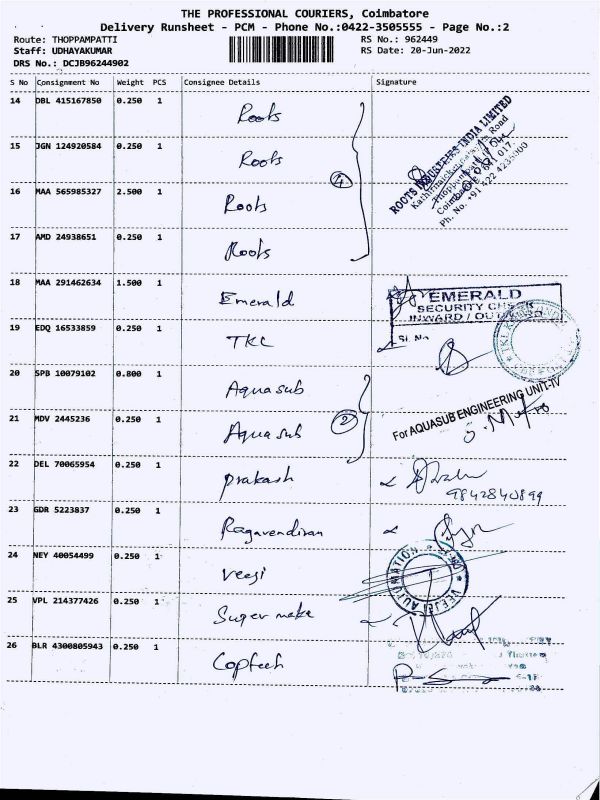 THE PROFESSIONAL COURIERS, Coimbatore
Delivery Runsheet - PCM - Phone No.:0422-3505555 - Page No.:2
Route: THOPPAMPATTI RS No.: 962449
Staff: UDHAYAKUMAR RS Date: 20-Jun-2022
DRS No.: DCJB96244902
S No Consignment No Weight PCS Consignee Details Signature
14 DBL 415167850 0.250 1 Roots
15 JGN 124920584 0.250 1 Roots
16 MAA 565985327 2.500 1 Roots
17 AMD 24938651 0.250 1 Roots
4
ROOTS INDUSTRIES INDIA LIMITED
Ph. No. +91 422 4235000
18 MAA 291462634 1.500 1 Emerald
EMERALD
SECURITY CHECK
INWARD / OUTWARD
Sl. No
19 EDQ 16533859 0.250 1 TKC
20 SPB 10079102 0.800 1 Aquasub
21 MDV 2445236 0.250 1 Aquasub
2
For AQUASUB ENGINEERING UNIT-IV
22 DEL 70065954 0.250 1 prakash
9842840899
23 GDR 5223837 0.250 1 Ragavendiran
24 NEY 40054499 0.250 1 veeji
AUTOMATION
25 VPL 214377426 0.250 1 Super make
26 BLR 4300805943 0.250 1 Coptech